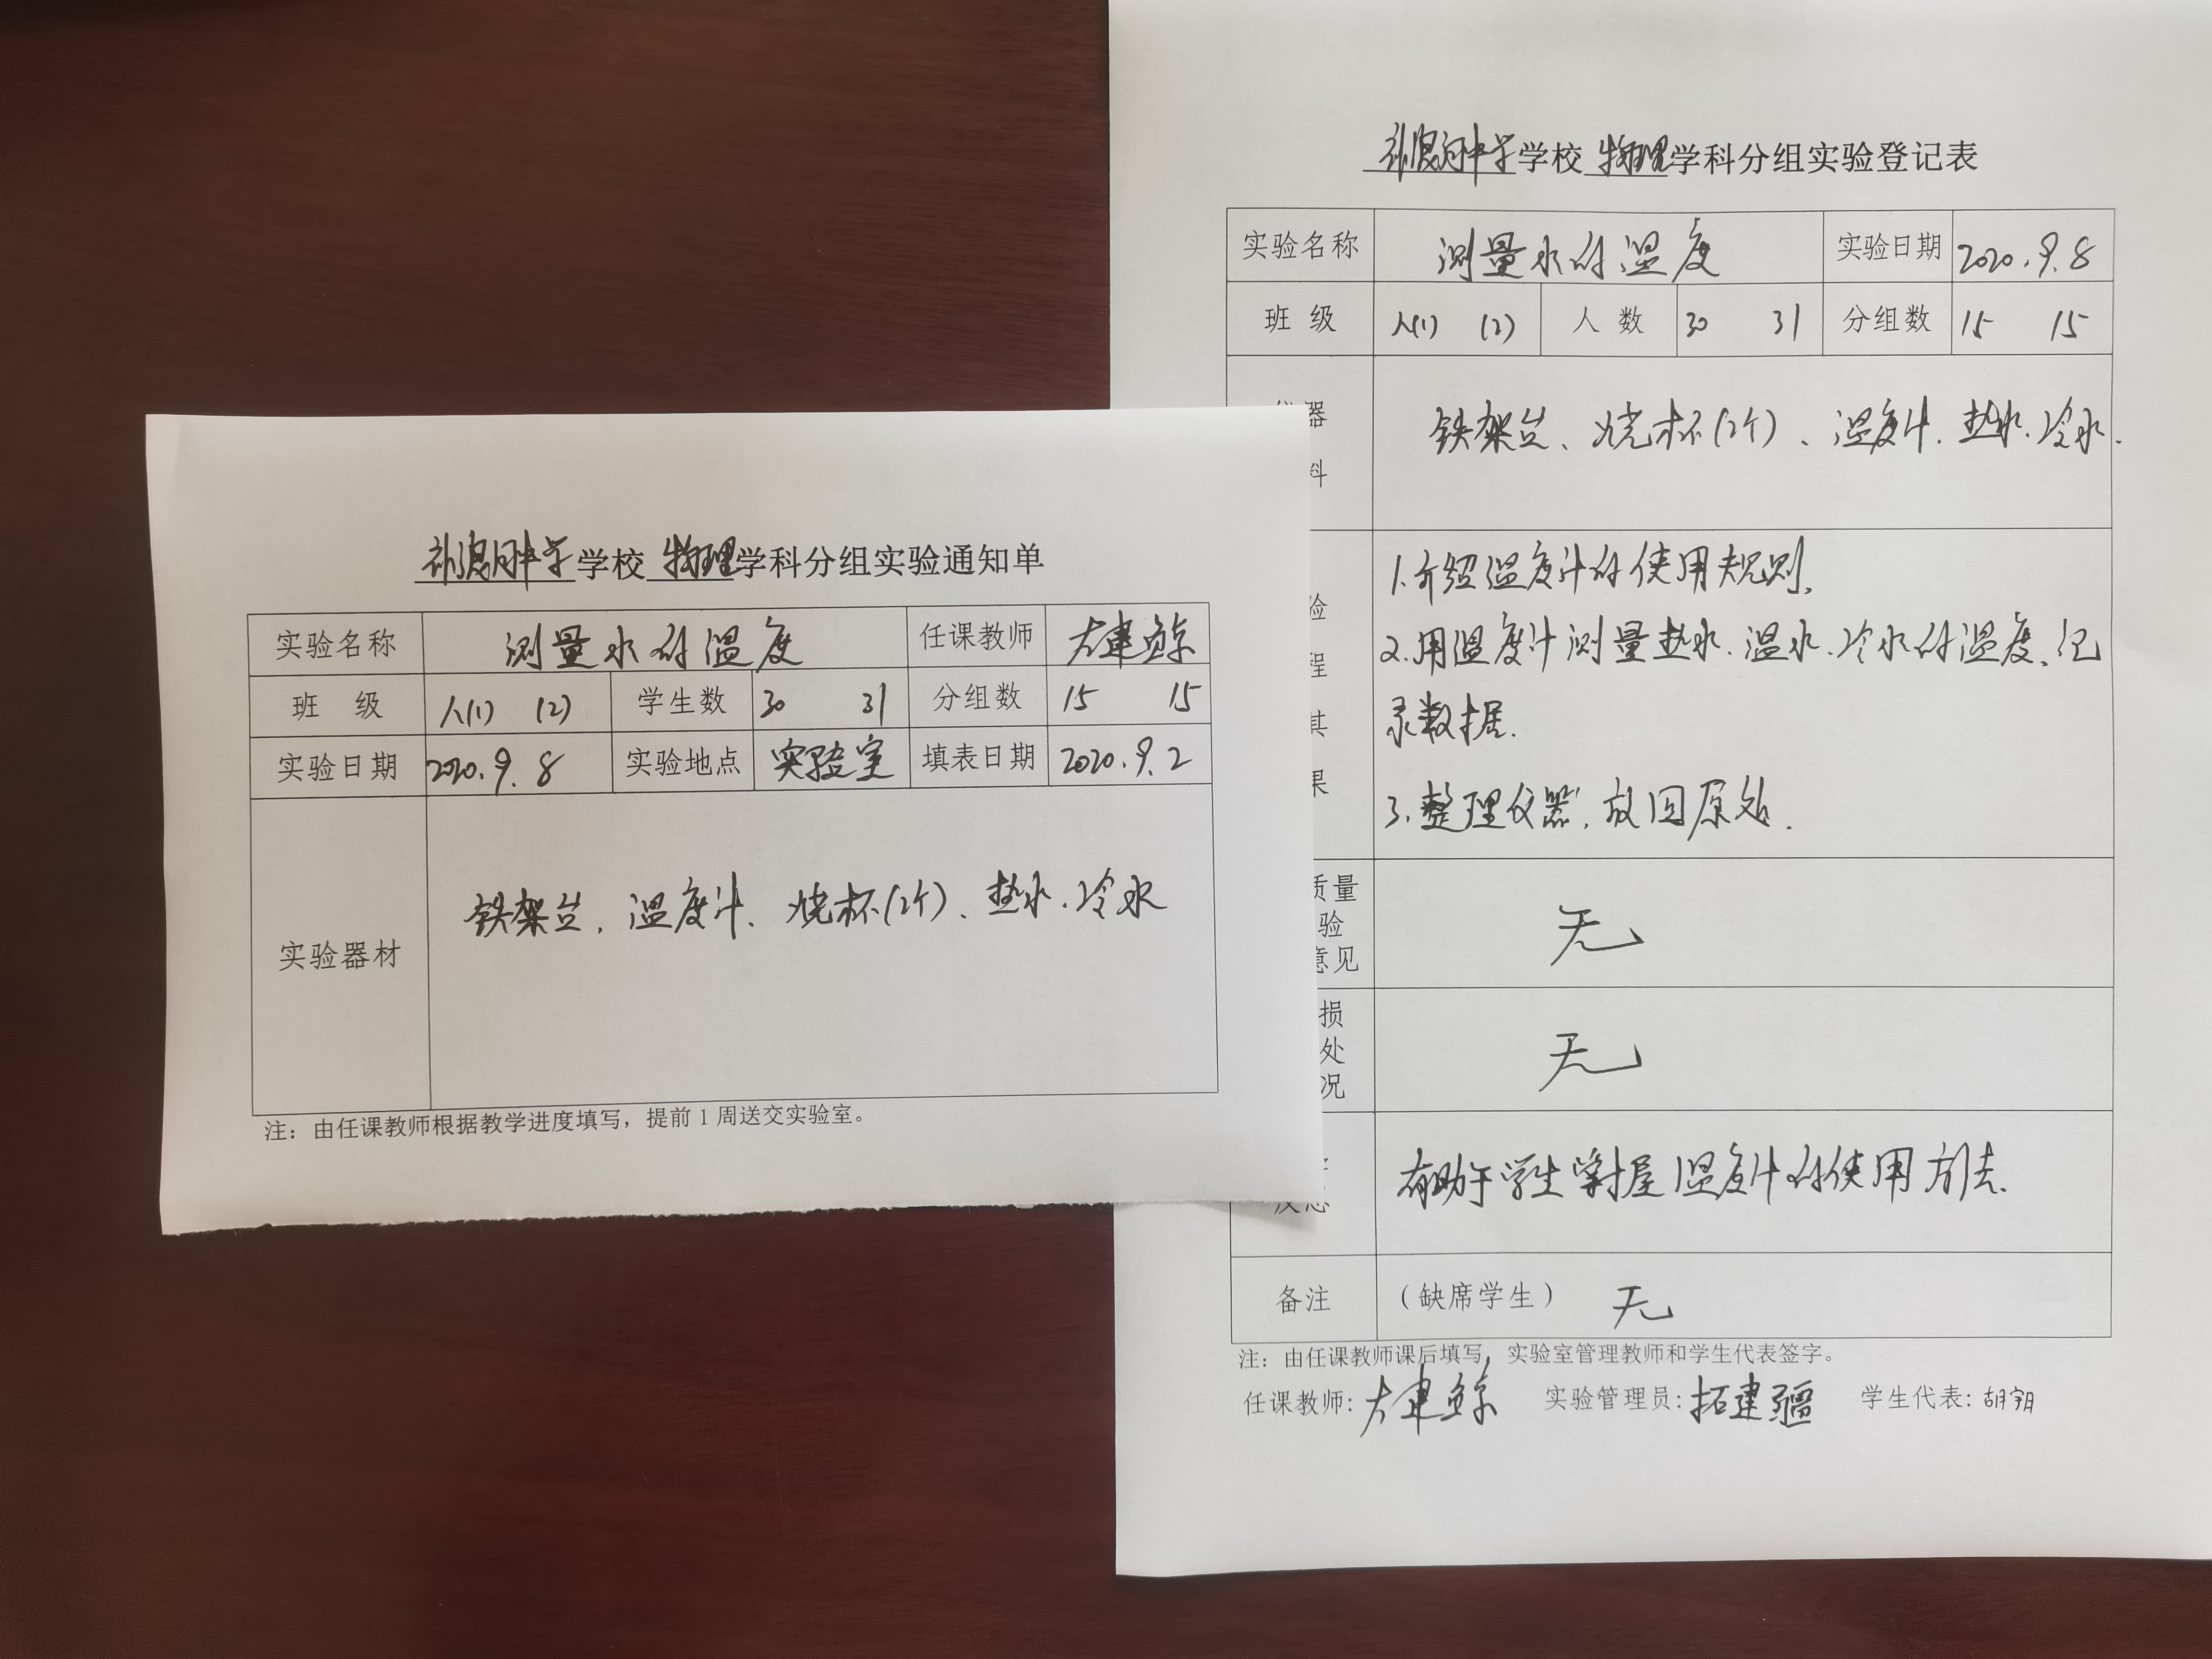 学校 物理学科分组实验通知单
实验名称 测量水的温度 任课教师
班 级 八(1) (2) 学生数 30 31 分组数 15 15
实验日期 2020.9.8 实验地点 实验室 填表日期 2020.9.2
实验器材 铁架台、温度计、烧杯(2个)、热水、冷水
注：由任课教师根据教学进度填写，提前1周送交实验室。
学校 物理学科分组实验登记表
实验名称 测量水的温度 实验日期 2020.9.8
班 级 八(1) (2) 人 数 30 31 分组数 15 15
器
料
铁架台、烧杯(2个)、温度计、热水、冷水.
验
程
其
果
1.介绍温度计的使用规则.
2.用温度计测量热水、温水、冷水的温度、记
录数据.
3.整理仪器,放回原处.
质量
验
意见
无
损
处
况
无
有助于学生掌握温度计的使用方法.
备注 （缺席学生） 无
注：由任课教师课后填写，实验室管理教师和学生代表签字。
任课教师: 实验管理员:拓建疆 学生代表:胡羽